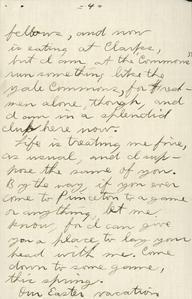 - 4 -
fellows, and now
is eating at Clarks,
but I am at the "Commons"
run something like the
Yale Commons, for Fresh-
men alone, though, and
I am in a splendid
club here now.
Life is treating me fine,
as usual, and I sup-
pose the same of you.
By the way, if you ever
come to Princeton to a game
or anything, let me
know, for I can give
you a place to lay your
head with me. Come
down to some game,
this spring.
Our Easter vacation